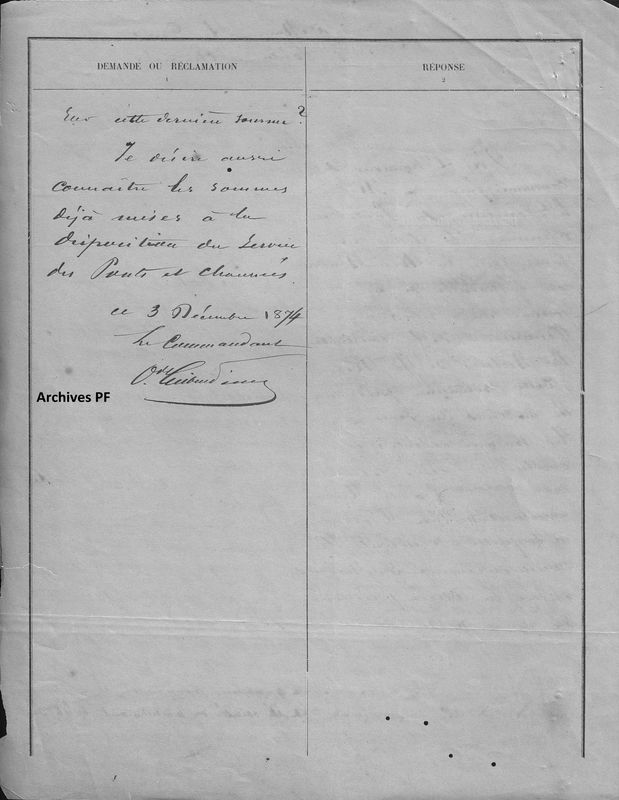 DEMANDE OU RÉCLAMATION
1
RÉPONSE
2
sur cette dernière somme ?
Je désire aussi
connaître les sommes
déjà mises à la
disposition du Service
des Ponts et chaussées.
ce 3 Décembre 1874
Le Commandant
Archives PF